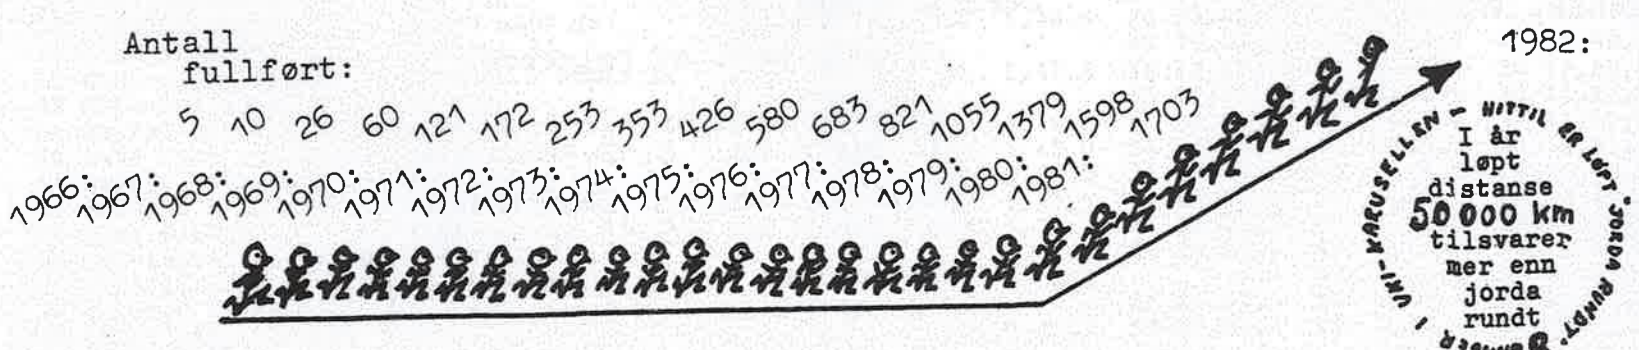 Antall
fullført:
1982:
5 10 26 60 121 172 253 353 426 580 683 821 1055 1379 1598 1703
1966: 1967: 1968: 1969: 1970: 1971: 1972: 1973: 1974: 1975: 1976: 1977: 1978: 1979: 1980: 1981:
I UNI-KARUSELLEN - HITTIL ER LØPT "JORDA RUNDT"
I år
løpt
distanse
50 000 km
tilsvarer
mer enn
jorda
rundt